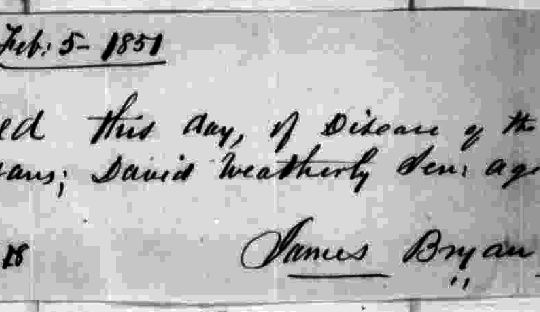 Feb: 5 - 1851
ed this day, of Disease of the
ans; David Weatherly Sen: age
18 James Bryan